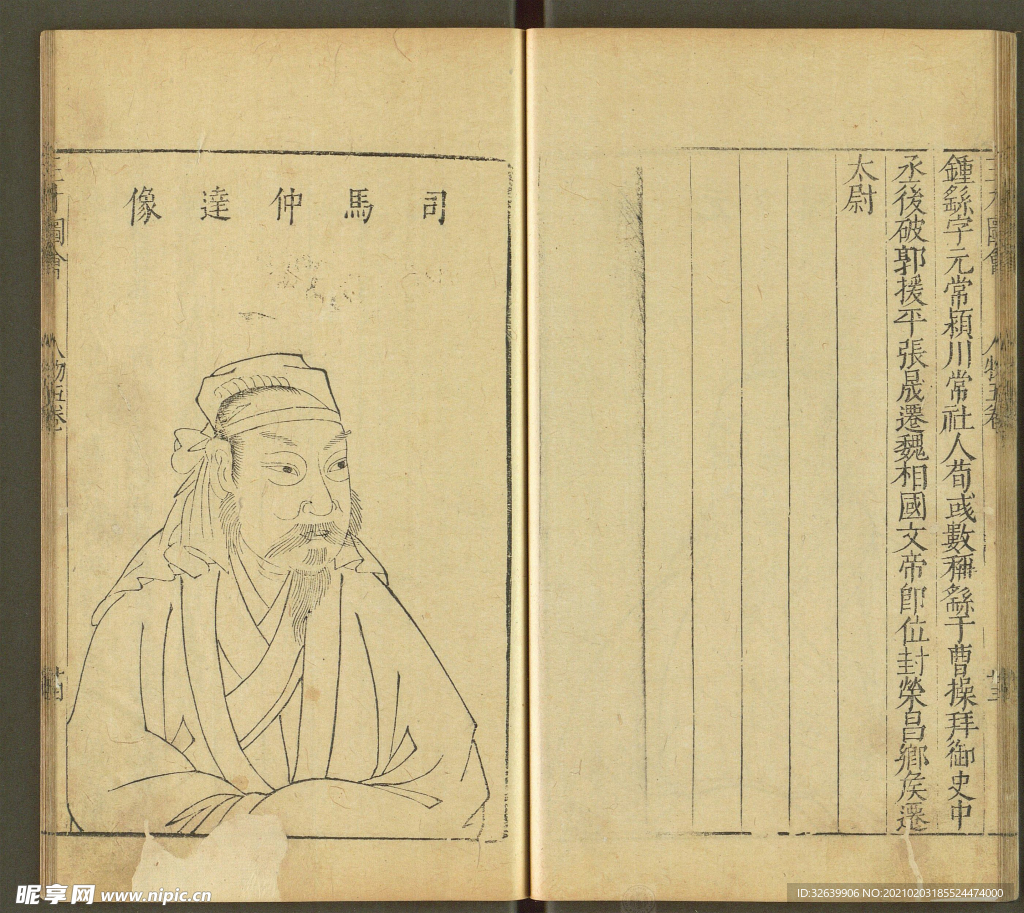 三才圖會 人物五卷 廿三
鍾繇字元常潁川常社人荀彧數稱繇于曹操拜御史中
丞後破郭援平張晟遷魏相國文帝即位封榮昌鄉侯遷
太尉
司馬仲達像
三才圖會 人物五卷
昵享网 www.nipic.cn
ID:32639906 NO:20210203185524474000